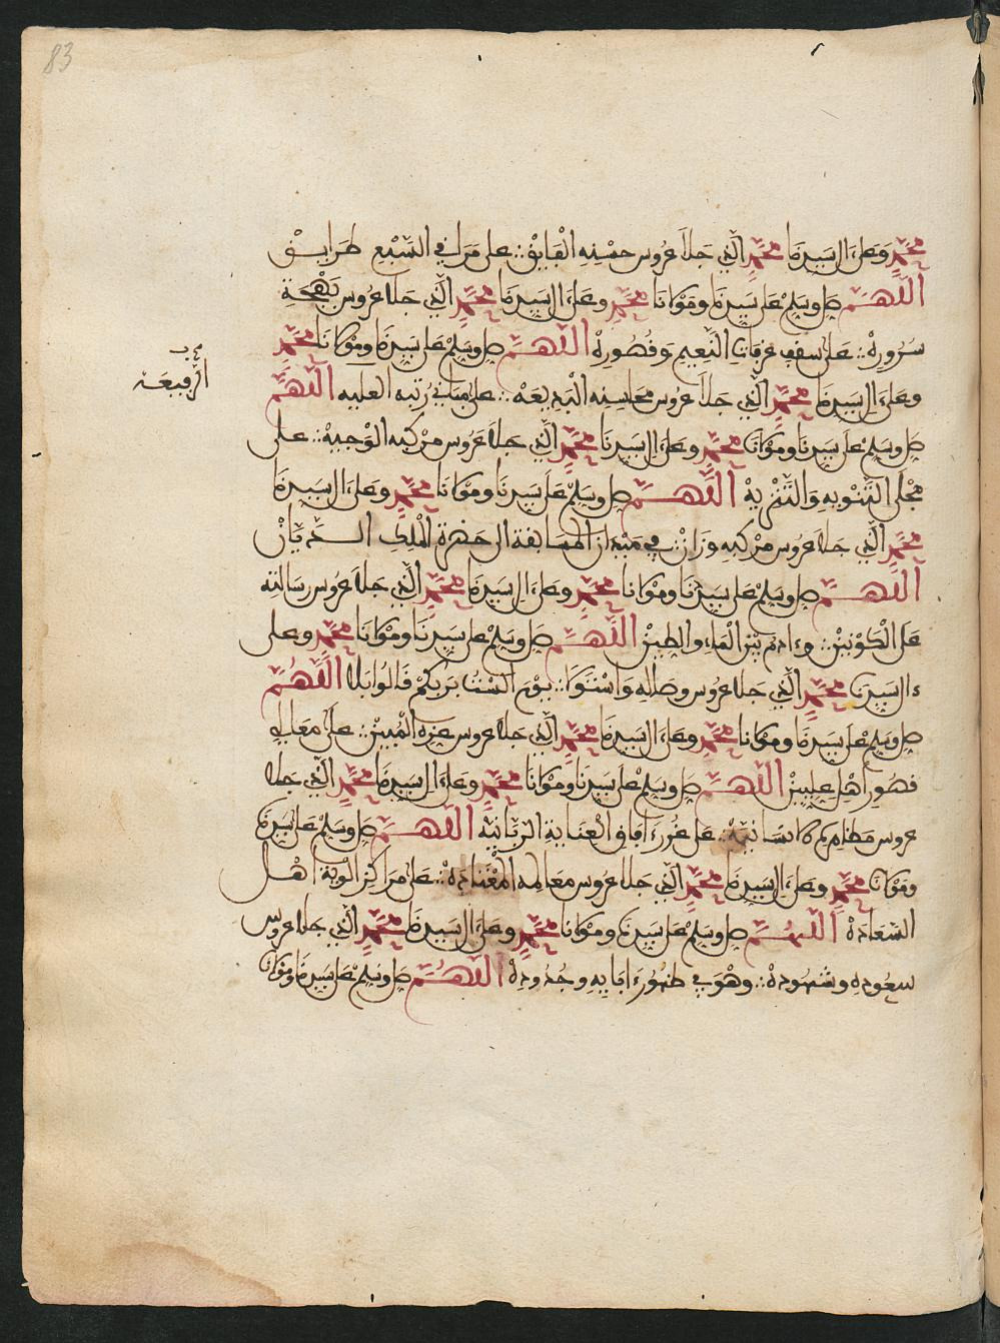 83
محمد وعلى ءال سيدنا محمد الذي جلا عروس حسنه الفايق ∴ على مراقي السبع طرايق
اللهم صل وسلم على سيدنا ومولانا محمد وعلى ءال سيدنا محمد الذي جلا عروس بهجة
سروره ∴ على سقف غرفات النعيم وقصوره اللهم صل وسلم على سيدنا ومولانا محمد
وعلى ءال سيدنا محمد الذي جلا عروس محاسنه البديعة ∴ على رتبه العليه اللهم
الرفيعة
صل وسلم على سيدنا ومولانا محمد وعلى ءال سيدنا محمد الذي جلا عروس مركبه الوجيه ∴ على
مجلى التنويه والتنزيه اللهم صل وسلم على سيدنا ومولانا محمد وعلى ءال سيدنا
محمد الذي جلا عروس مركبه وزان ∴ في ميدان المسابقة الى حضرة الملك الديان
اللهم صل وسلم على سيدنا ومولانا محمد وعلى ءال سيدنا محمد الذي جلا عروس رسالته
على الكونين ∴ وءادم بين الماء والطين اللهم صل وسلم على سيدنا ومولانا محمد وعلى
ءال سيدنا محمد الذي جلا عروس وصاله واستولا ∴ يوم الست بربكم قالوا بلا اللهم
صل وسلم على سيدنا ومولانا محمد وعلى ءال سيدنا محمد الذي جلا عروس عزه المبين ∴ على معالي
قصور أهل عليين اللهم صل وسلم على سيدنا ومولانا محمد وعلى ءال سيدنا محمد الذي جلا
عروس مظاهره الانسانية ∴ على غرر ءافاق العناية الربانيه اللهم صل وسلم على سيدنا
ومولانا محمد وعلى ءال سيدنا محمد الذي جلا عروس معالمه المعتادة ∴ على مراكز الوية اهل
السعادة اللهم صل وسلم على سيدنا ومولانا محمد وعلى ءال سيدنا محمد الذي جلا عروس
سعوده وشهوده ∴ وهو في ظهور ءابايه وجدوده اللهم صل وسلم على سيدنا ومولانا